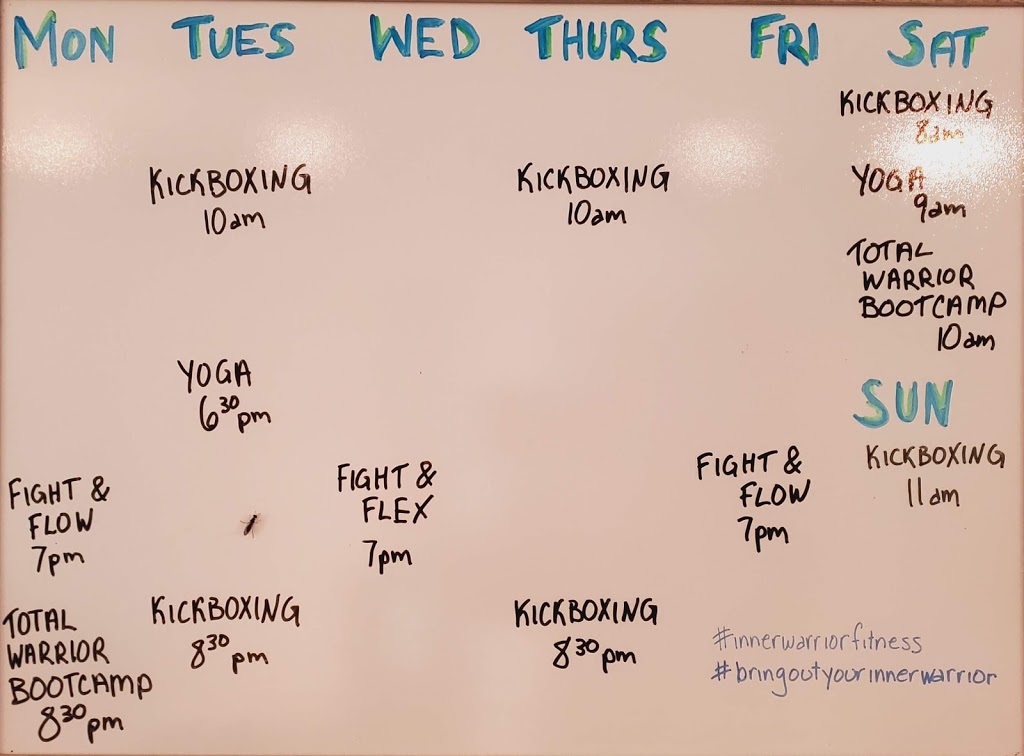 MON TUES WED THURS FRI SAT
KICKBOXING
8am
KICKBOXING
10am
KICKBOXING
10am
YOGA
9am
TOTAL
WARRIOR
BOOTCAMP
10am
YOGA
6³⁰pm
SUN
KICKBOXING
11am
FIGHT &
FLOW
7pm
FIGHT &
FLEX
7pm
FIGHT &
FLOW
7pm
TOTAL
WARRIOR
BOOTCAMP
8³⁰pm
KICKBOXING
8³⁰ pm
KICKBOXING
8³⁰pm
#innerwarriorfitness
#bringoutyourinnerwarrior